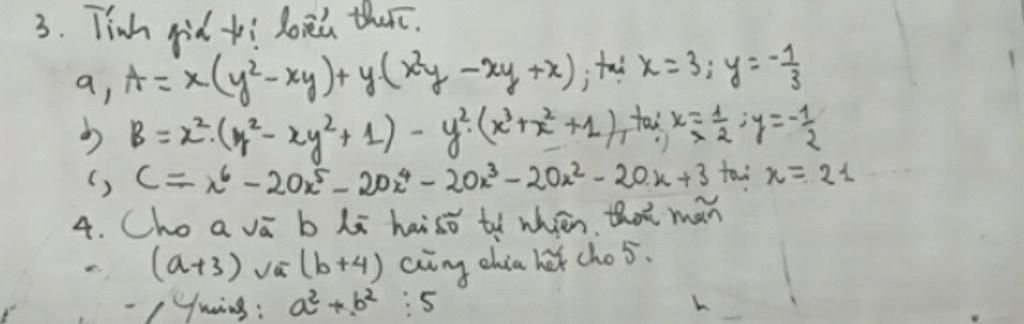 3. Tính giá trị biểu thức.
a, A = x(y² - xy) + y(x²y - xy + x), tại x = 3; y = -1/3
b) B = x².(y² - xy² + 1) - y².(x³ + x² + 1), tại x = 1/2; y = -1/2
c, C = x⁶ - 20x⁵ - 20x⁴ - 20x³ - 20x² - 20x + 3 tại x = 21
4. Cho a và b là hai số tự nhiên thoả mãn
(a+3) và (b+4) cùng chia hết cho 5.
minh: a² + b² ⋮ 5